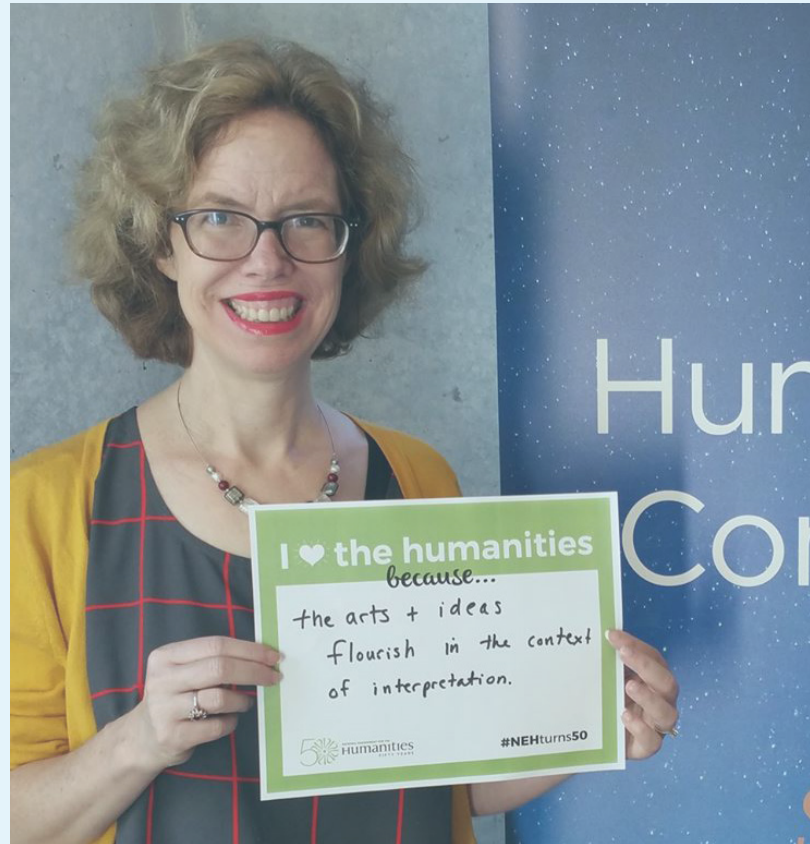 Hum
Con
I ♥ the humanities
because...
the arts + ideas
flourish in the context
of interpretation.
50
Humanities
FIFTY YEARS
#NEHturns50